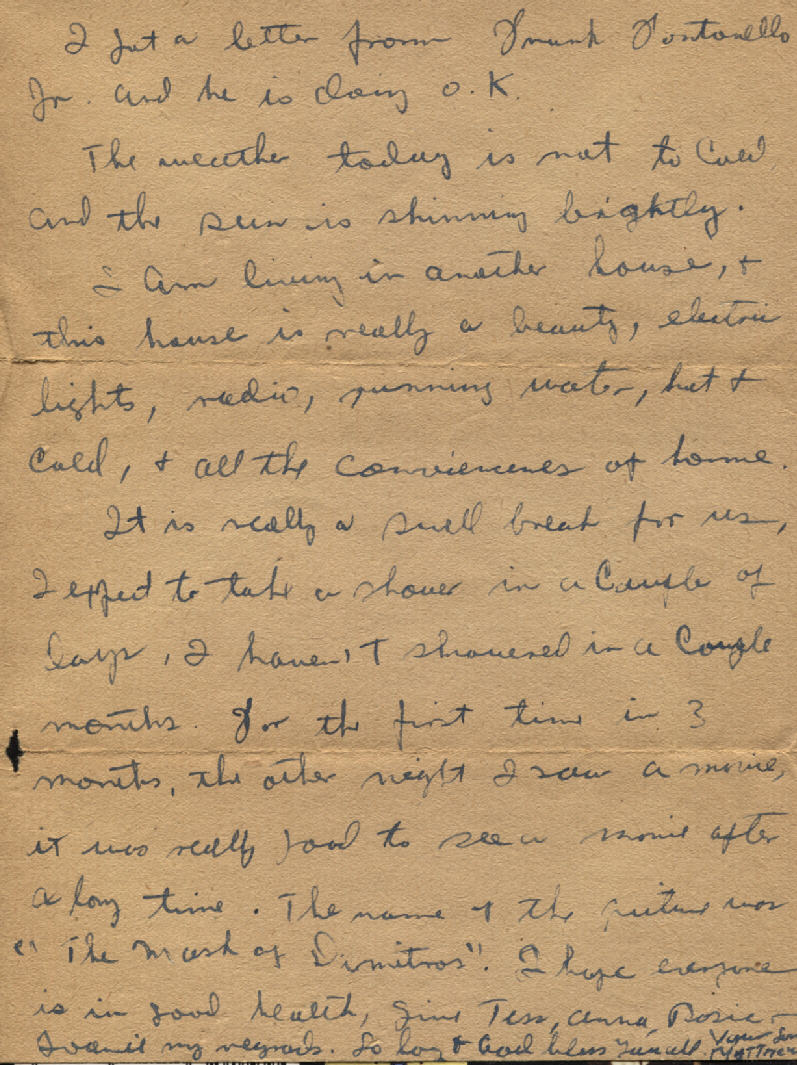 I got a letter from Frank Fontanello
Jr. and he is doing O.K.
The weather today is not to Cold
and the sun is shinning brightly.
I Am living in another house, +
this house is really a beauty, electric
lights, radio, running water, hot +
Cold, + all the conviences of home.
It is really a swell break for us,
I expect to take a shower in a Couple of
days, I haven't showered in a Couple
months. For the first time in 3
months, the other night I saw a movie,
it was really good to see a movie after
a long time. The name of the picture was
"The Mask of Dimitros". I hope everyone
is in good health, give Tess, Anna, Rosie
my regards. So long + God bless you all. Your Son